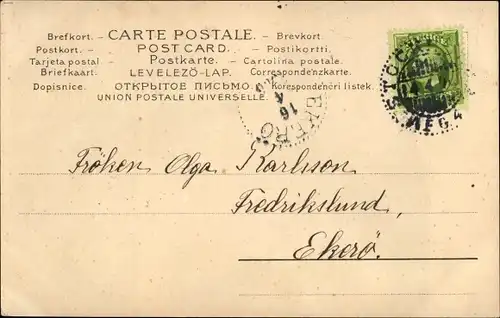 Brefkort. – CARTE POSTALE. – Brevkort.
Postkort. – POST CARD. – Postikortti.
Tarjeta postal – Postkarte. – Cartolina postale.
Briefkaart. – LEVELEZŐ-LAP. – Correspondenzkarte.
Dopisnice. – ОТКРЫТОЕ ПИСЬМО. – Korespondenčni listek.
UNION POSTALE UNIVERSELLE.
EKERÖ
16
4
Fröken Olga Karlsson
Fredrikslund,
Ekerö.